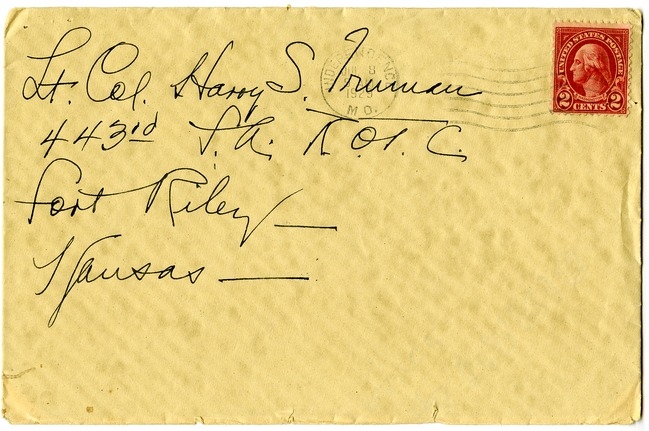 Lt. Col. Harry S. Truman
443rd F.A. R.O.T.C.
Fort Riley
Kansas
INDEPENDENCE
MO.
UNITED STATES POSTAGE
2 CENTS 2